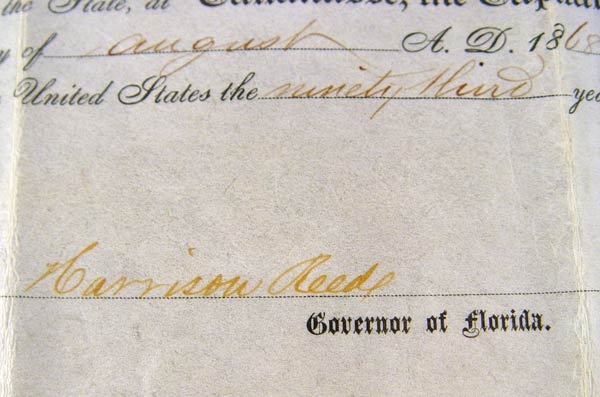 the State, at Tallahassee, the Capital
y of august A. D. 1868
United States the ninety third yea
Harrison Reed
Governor of Florida.